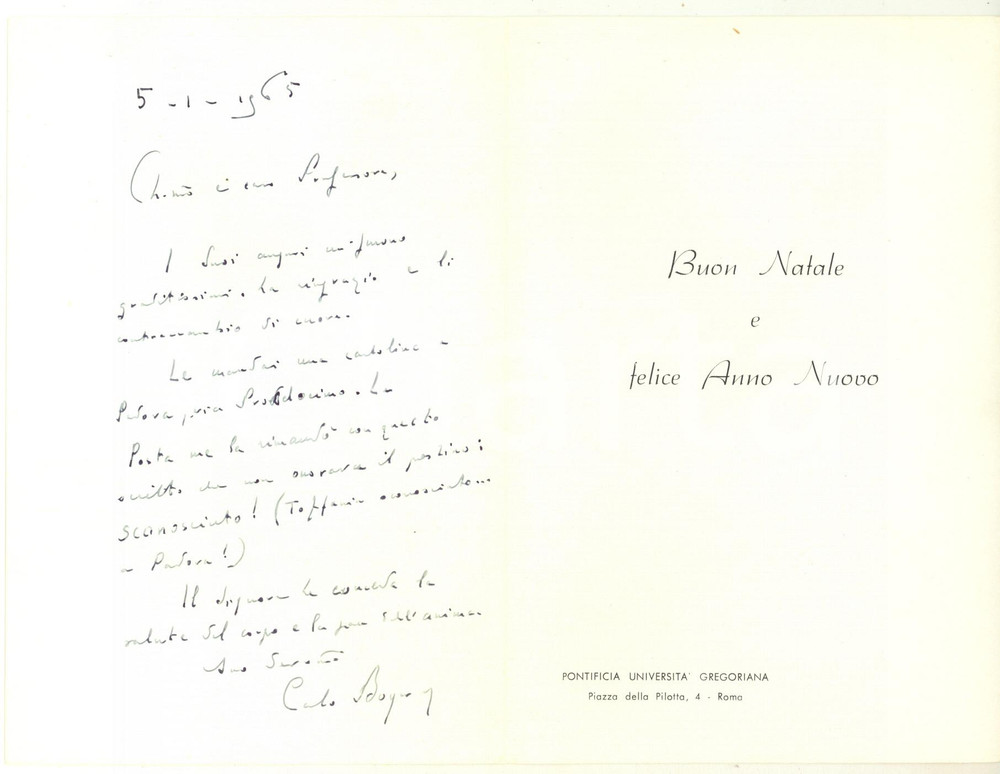 5-1-1965
Ch.mo e caro Professore,
I Suoi auguri mi furono
graditissimi. La ringrazio e li
contraccambio di cuore.
Le mandai una cartolina a
Padova, presso Prosdocimo. La
Posta me la rimandò con questo
scritto che non onorava il postino:
Sconosciuto! (Toffanin sconosciuto...
a Padova!)
Il Signore Le conceda la
salute del corpo e la pace dell'anima.
Suo Dev.mo
Carlo
Buon Natale
e
felice Anno Nuovo
PONTIFICIA UNIVERSITA' GREGORIANA
Piazza della Pilotta, 4 - Roma